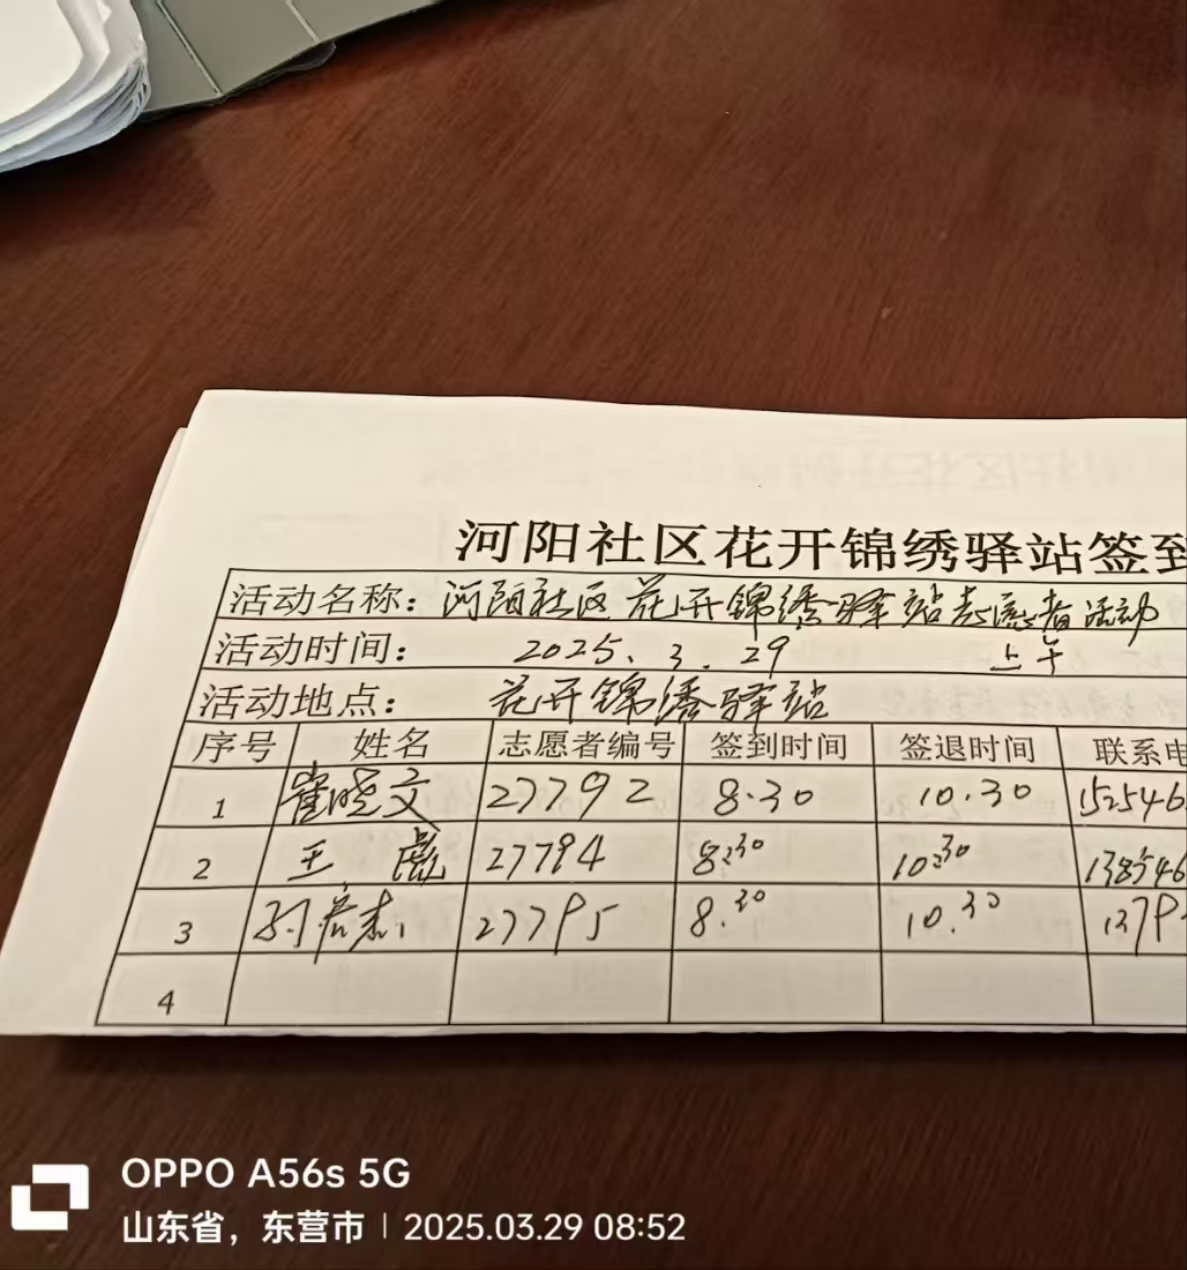 河阳社区花开锦绣驿站签到
活动名称：河阳社区花开锦绣驿站志愿者活动
活动时间： 2025.3.29 上午
活动地点： 花开锦绣驿站
序号 姓名 志愿者编号 签到时间 签退时间 联系电
1 崔晓文 27792 8.30 10.30 152546
2 王彪 27794 8:30 10:30 138546
3 27795 8.30 10.30 1379
4
OPPO A56s 5G
山东省，东营市 | 2025.03.29 08:52